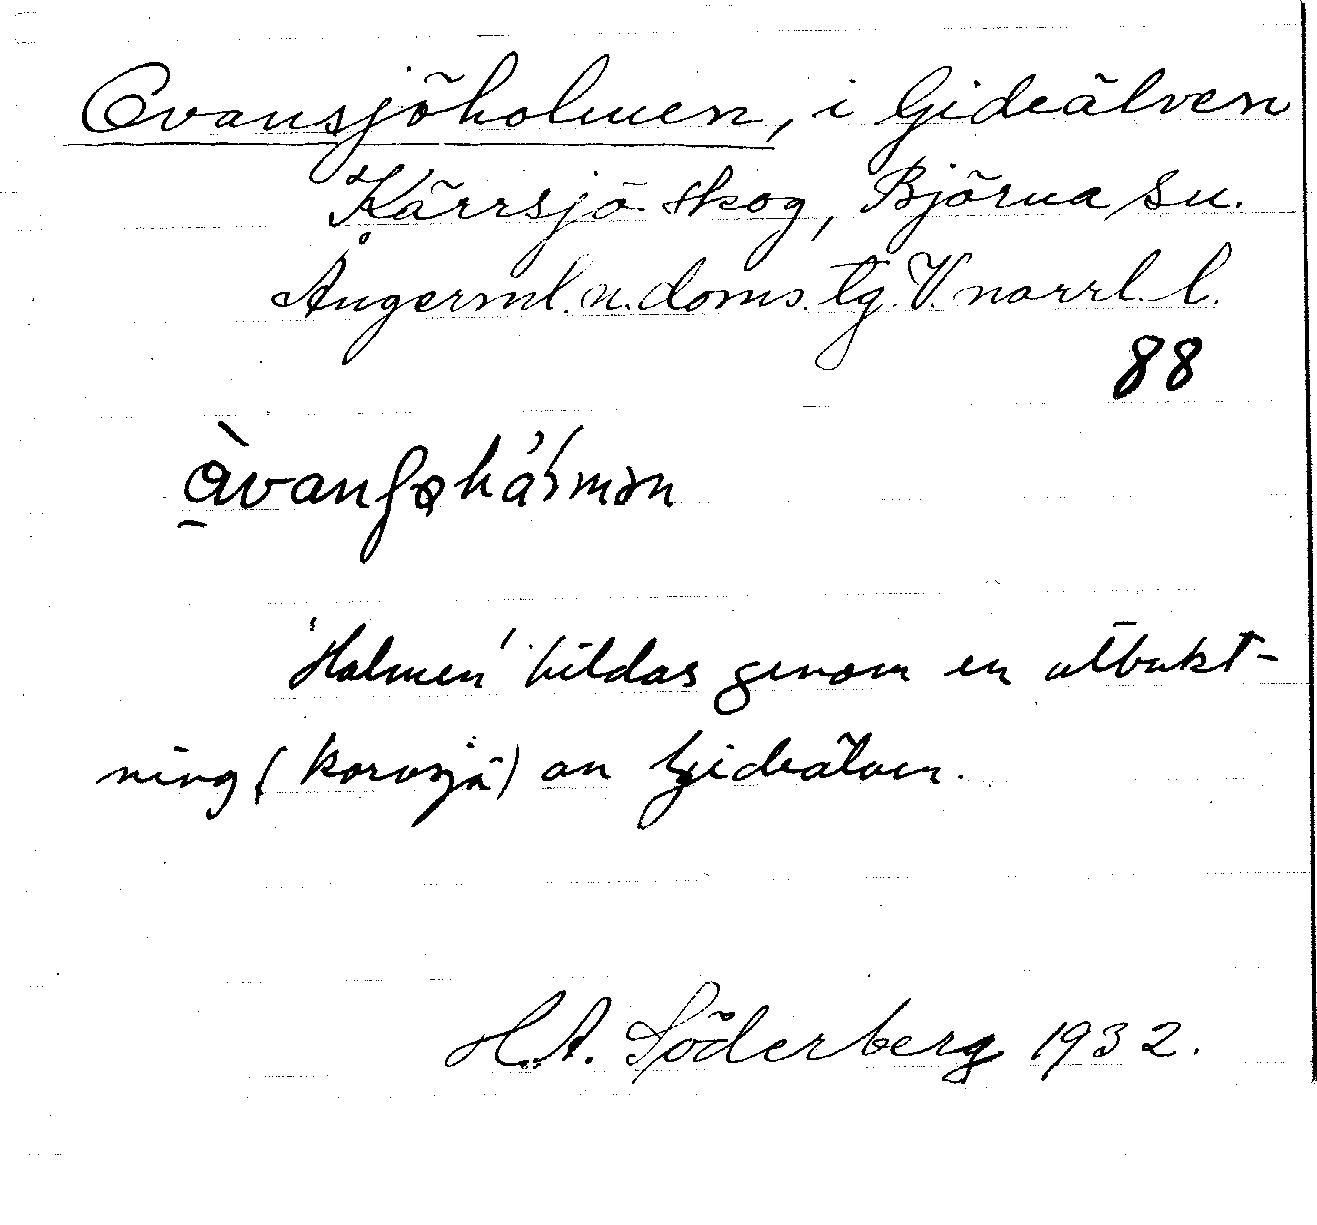 Ovansjöholmen, i Gideälven
Kärrsjö skog, Björna sn.
Ångerml. n. doms. tg. V. norrl. l.
88
'Holmen' bildas genom en utbukt-
ning (korvsjö) av Gideälven.
H.A. Söderberg 1932.